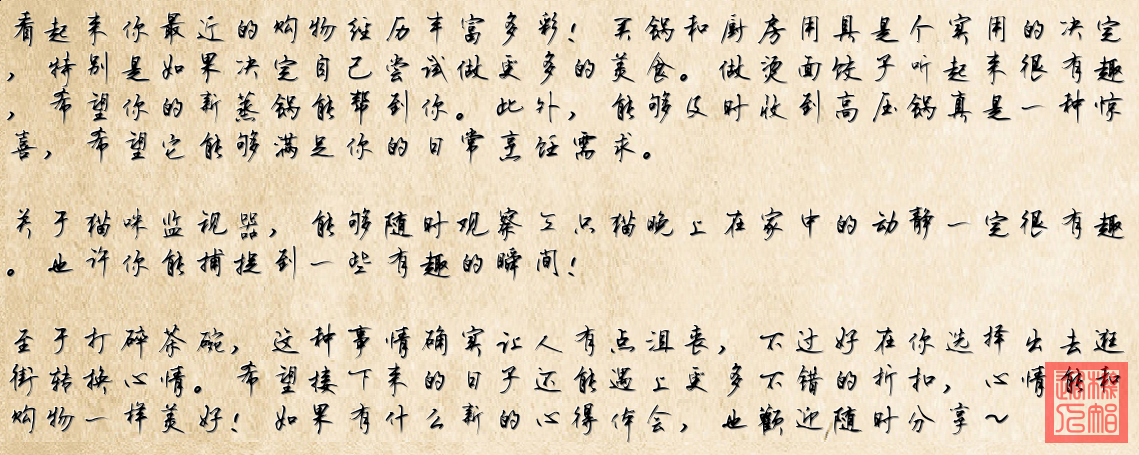 看起来你最近的购物经历丰富多彩！买锅和厨房用具是个实用的决定
，特别是如果决定自己尝试做更多的美食。做烫面饺子听起来很有趣
，希望你的新蒸锅能帮到你。此外，能够及时收到高压锅真是一种惊
喜，希望它能够满足你的日常烹饪需求。
关于猫咪监视器，能够随时观察三只猫晚上在家中的动静一定很有趣
。也许你能捕捉到一些有趣的瞬间！
至于打碎茶碗，这种事情确实让人有点沮丧，不过好在你选择出去逛
街转换心情。希望接下来的日子还能遇上更多不错的折扣，心情能和
购物一样美好！如果有什么新的心得体会，也欢迎随时分享～